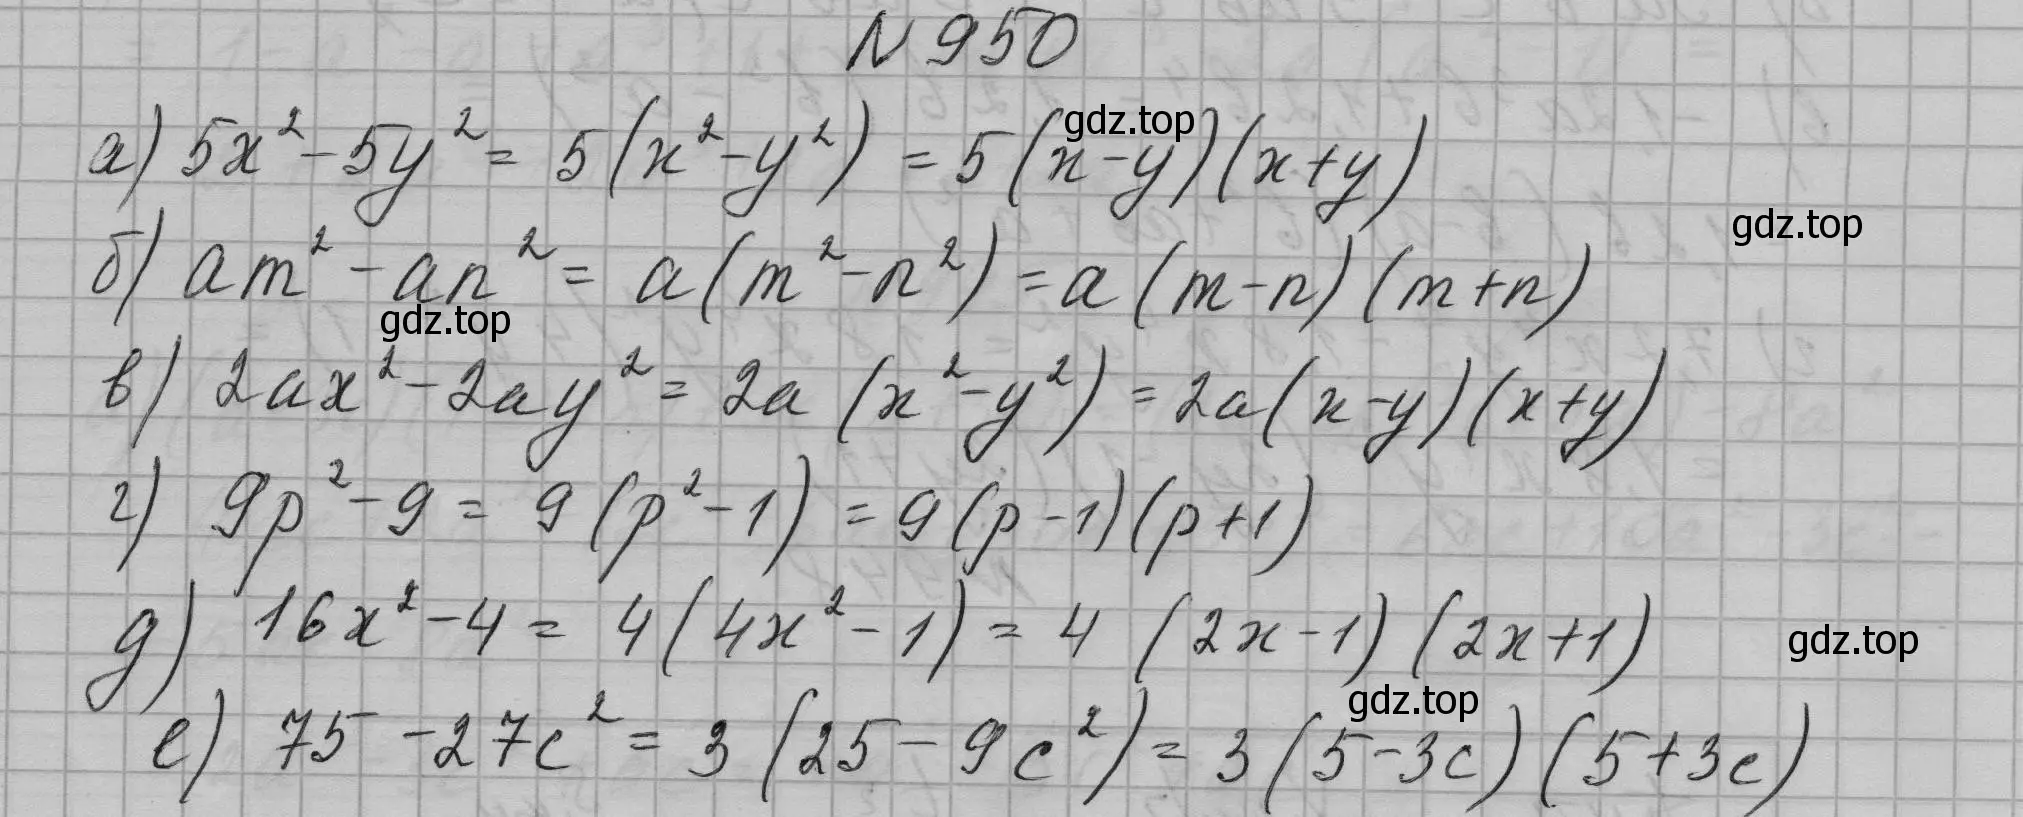 N 950
gdz.top
а) 5x² - 5y² = 5(x² - y²) = 5(x - y)(x + y)
gdz.top
б) am² - an² = a(m² - n²) = a(m - n)(m + n)
gdz.top
в) 2ax² - 2ay² = 2a(x² - y²) = 2a(x - y)(x + y)
г) 9p² - 9 = 9(p² - 1) = 9(p - 1)(p + 1)
д) 16x² - 4 = 4(4x² - 1) = 4(2x - 1)(2x + 1)
gdz.top
gdz.top
е) 75 - 27c² = 3(25 - 9c²) = 3(5 - 3c)(5 + 3c)